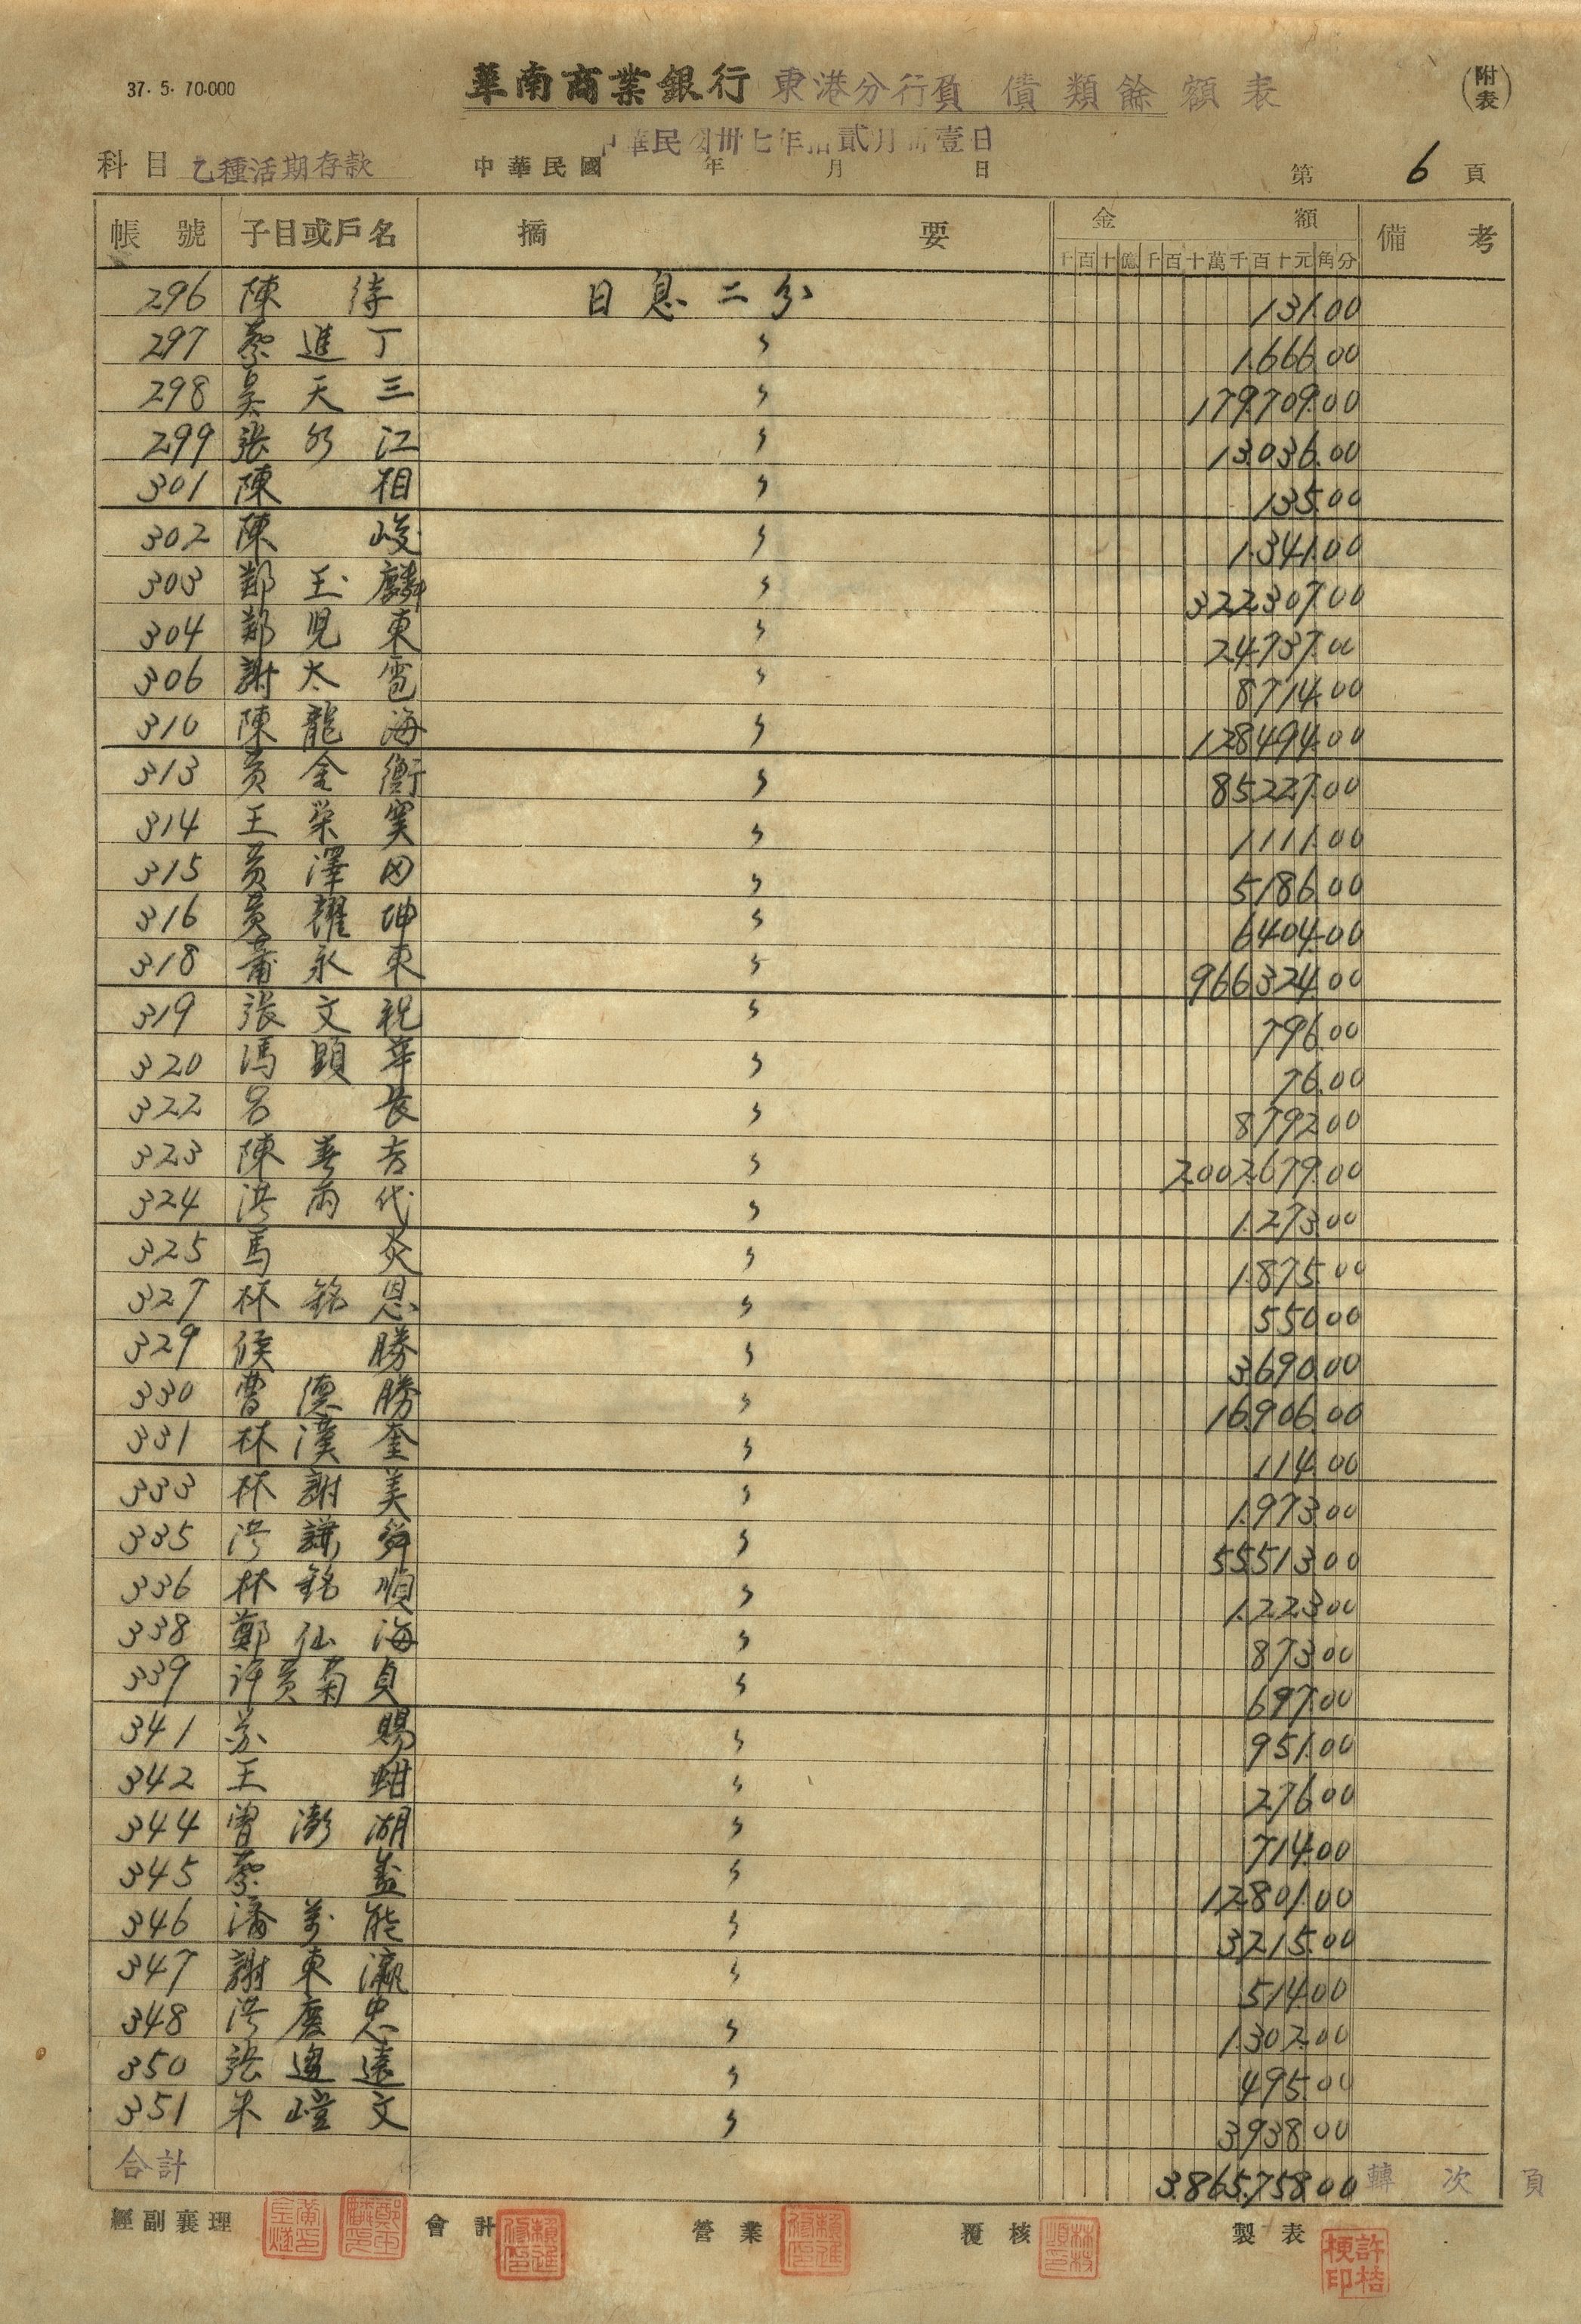 37. 5. 70.000
華南商業銀行 東港分行負債類餘額表
(附表)
中華民國卅七年拾貳月卅壹日
科目 乙種活期存款 中華民國 年 月 日 第 6 頁
帳號 子目或戶名 摘要 金額 備考
千百十億千百十萬千百十元角分
296 陳待 日息二分 131.00
297 蔡進丁 〃 1.666.00
298 吳天三 〃 179.709.00
299 張水江 〃 13.036.00
301 陳相 〃 135.00
302 陳峻 〃 1.341.00
303 鄭玉麟 〃 322307.00
304 鄭児東 〃 24.737.00
306 謝太雹 〃 8714.00
310 陳龍海 〃 128494.00
313 黃金衡 〃 85227.00
314 王榮 〃 1111.00
315 黃澤 〃 5186.00
316 黃耀坤 〃 6404.00
318 莆永東 〃 966324.00
319 張文祝 〃 796.00
320 馮顕華 〃 76.00
322 呂長 〃 8792.00
323 陳春吉 〃 2.002.679.00
324 洪兩代 〃 1.273.00
325 馬炎 〃 1.875.00
327 林銘恩 〃 550.00
329 候勝 〃 3.690.00
330 曹德勝 〃 16.906.00
331 林漢奎 〃 114.00
333 林謝美 〃 1.973.00
335 洪謙舜 〃 55513.00
336 林銘順 〃 1.223.00
338 鄭仙海 〃 873.00
339 許黃菊貞 〃 697.00
341 苏賜 〃 951.00
342 王蚶 〃 276.00
344 曾澎湖 〃 714.00
345 蔡盖 〃 12801.00
346 潘萬能 〃 3.215.00
347 謝東瀛 〃 514.00
348 洪慶忠 〃 1.302.00
350 張遠 〃 495.00
351 朱嵦文 〃 3.938.00
合計 3.865.758.00 轉次頁
經副襄理 會計 營業 覆核 製表
許梏梗印